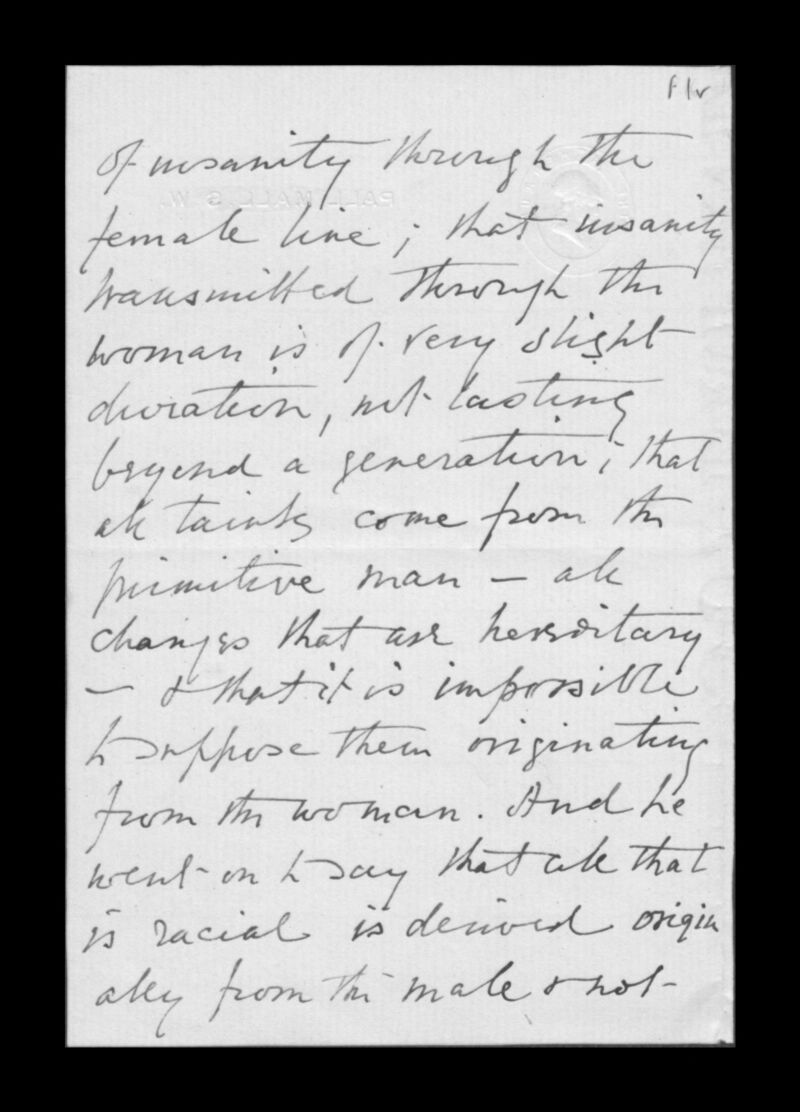 f1v
of insanity through the
PALL MALL. S. W.
female line; that insanity
transmitted through the
woman is of very slight
duration, not lasting
beyond a generation; that
all taints come from the
primitive man – all
changes that are hereditary
– & that it is impossible
to suppose them originating
from the woman. And he
went on to say that all that
is racial is derived origin
ally from the male & not